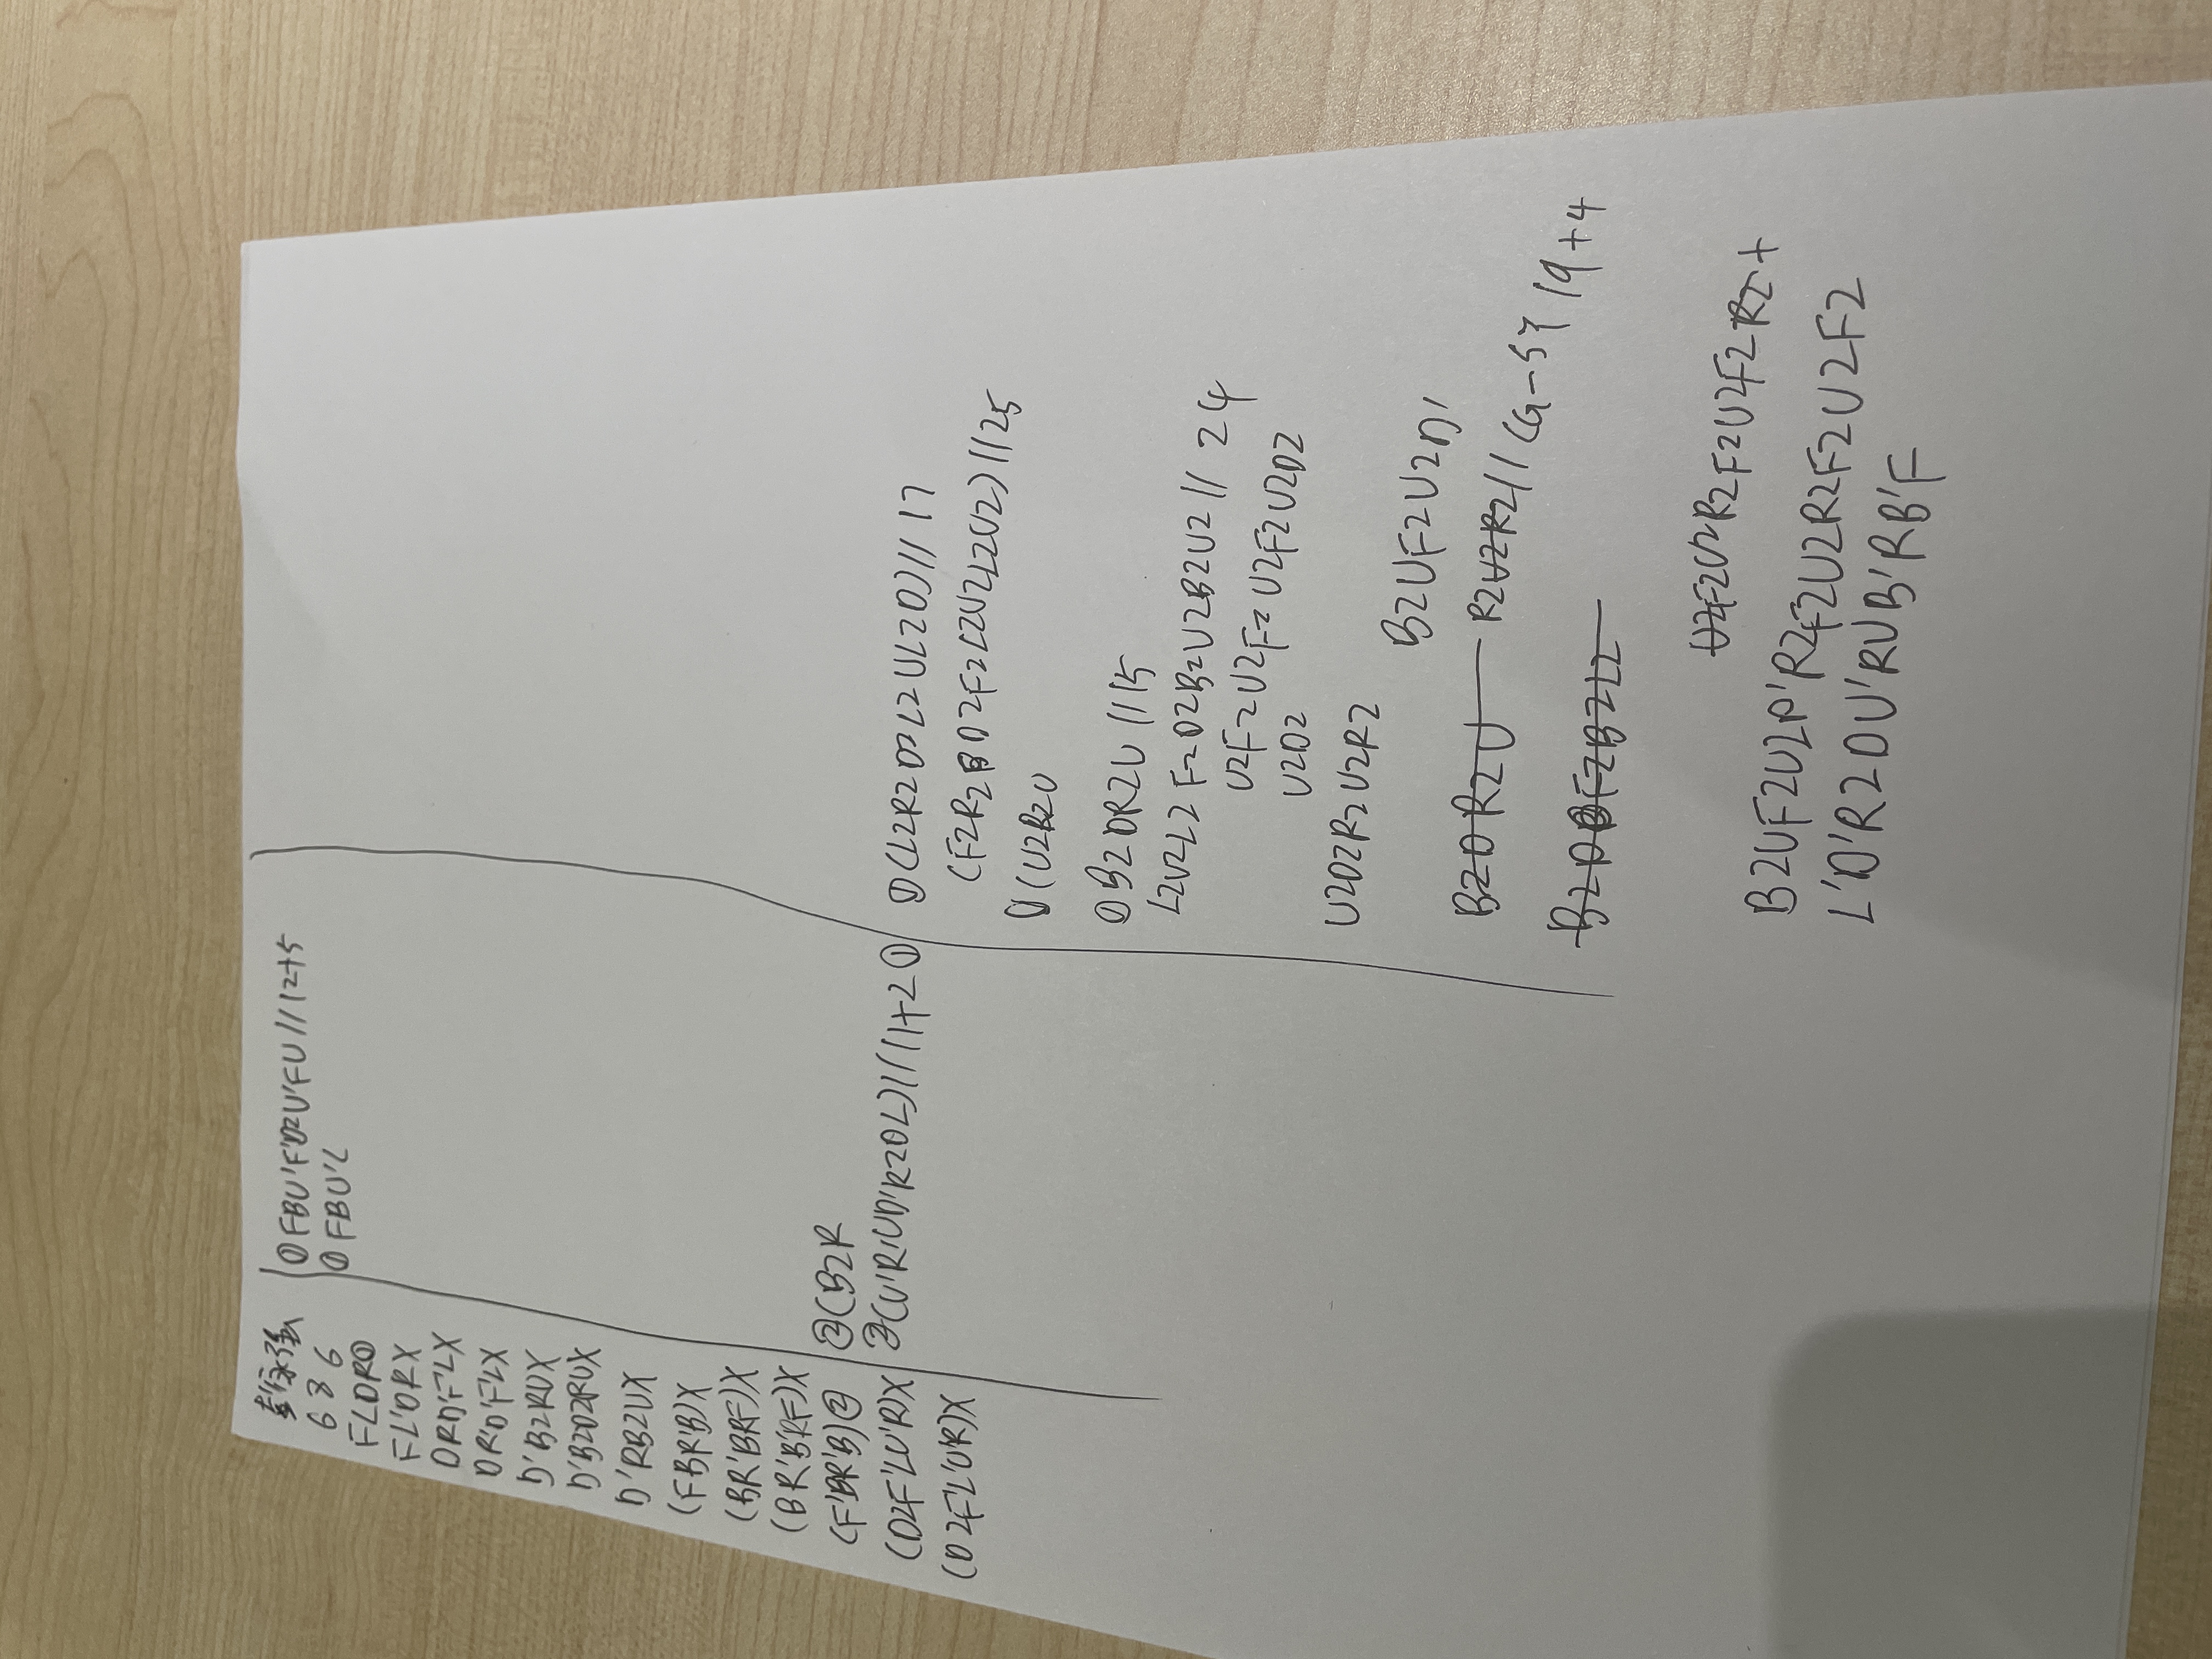 6 8 6
FLDRD
FL'DRX
DRD'F'LX
DR'D'F'LX
D'B2RUX
D'B2D2RUX
D'RB2UX
(FBR'B)X
(BR'BRF)X
(BR'B'RF)X
(F'BR'B)②
(D2F'LU'R)X
(D2F'L'U'R)X
①FBU'F'D2U'FU//12+5
①FBU'L
②(B2R
②(U'R'UD'R2DL)//11+2①
①(L2R2D2L2UL2D)//17
(F2R2D2F2L2U2L2U2)//25
①(U2R2U
①B2DR2U//15
L2U2L2F2D2B2U2B2U2//24
U2F2U2F2U2F2U2D2
U2D2
U2D2R2U2R2
B2UF2U2D'
B2DR2U R2U2R2//CG-5{19+4
U2F2U2R2F2U2F2R2+
B2UF2U2D'R2F2U2R2F2U2F2
L'D'R2DU'RUB'RB'F